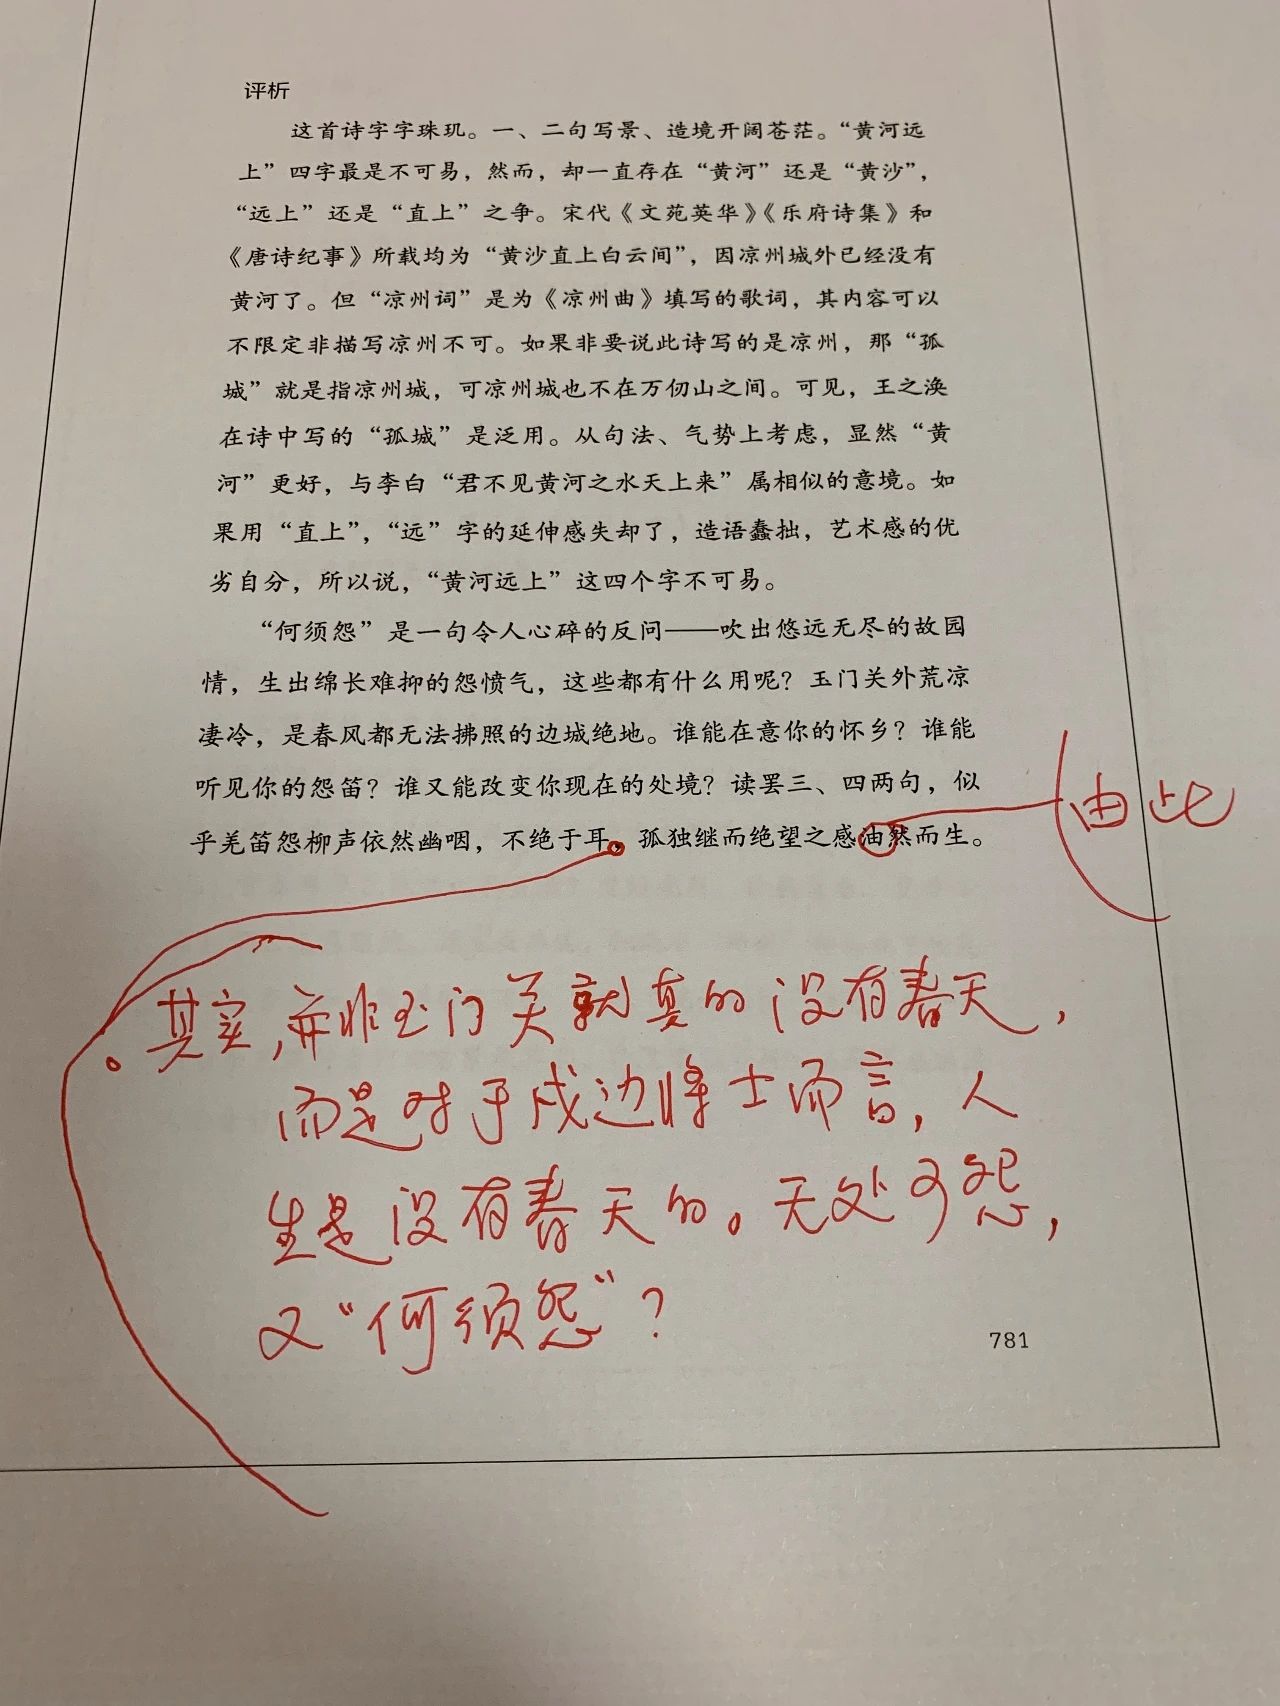 评析
这首诗字字珠玑。一、二句写景、造境开阔苍茫。“黄河远
上”四字最是不可易，然而，却一直存在“黄河”还是“黄沙”，
“远上”还是“直上”之争。宋代《文苑英华》《乐府诗集》和
《唐诗纪事》所载均为“黄沙直上白云间”，因凉州城外已经没有
黄河了。但“凉州词”是为《凉州曲》填写的歌词，其内容可以
不限定非描写凉州不可。如果非要说此诗写的是凉州，那“孤
城”就是指凉州城，可凉州城也不在万仞山之间。可见，王之涣
在诗中写的“孤城”是泛用。从句法、气势上考虑，显然“黄
河”更好，与李白“君不见黄河之水天上来”属相似的意境。如
果用“直上”，“远”字的延伸感失却了，造语蠢拙，艺术感的优
劣自分，所以说，“黄河远上”这四个字不可易。
“何须怨”是一句令人心碎的反问——吹出悠远无尽的故园
情，生出绵长难抑的怨愤气，这些都有什么用呢？玉门关外荒凉
凄冷，是春风都无法拂照的边城绝地。谁能在意你的怀乡？谁能
听见你的怨笛？谁又能改变你现在的处境？读罢三、四两句，似
乎羌笛怨柳声依然幽咽，不绝于耳，孤独继而绝望之感油然而生。
由此
其实，并非玉门关就真的没有春天，
而是对于戍边将士而言，人
生是没有春天的。无处可怨，
又“何须怨”？
781